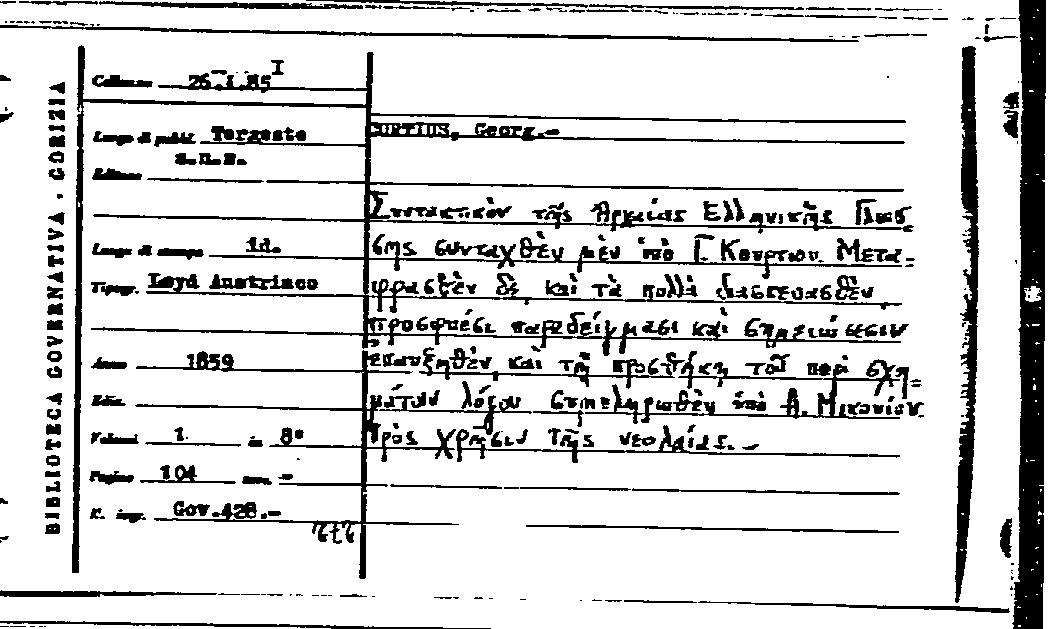 BIBLIOTECA GOVERNATIVA . GORIZIA
Collocaz. 26.I.85 I
Luogo di pubbl. Tergeste
s.n.e.
Editore
Luogo di stampa id.
Tipogr. Loyd Austriaco
Anno 1859
Ediz.
Volumi 1 in 8°
Pagine 104 –
N. ingr. Gov.428.–
CURTIUS, Georg.–
Συντακτικὸν τῆς Ἀρχαίας Ἑλληνικῆς Γλώσ=
σης συνταχθὲν μὲν ὑπὸ Γ. Κουρτίου. Μετα=
φρασθὲν δὲ, καὶ τὰ πολλὰ διασκευασθὲν,
προσφυέσι παραδείγμασι καὶ σημειώσεσιν
ἐπαυξηθὲν, καὶ τῇ προσθήκῃ τοῦ περὶ σχη=
μάτων λόγου συμπληρωθὲν ὑπὸ Α. Μικονίου
Πρὸς χρῆσιν τῆς νεολαίας. –